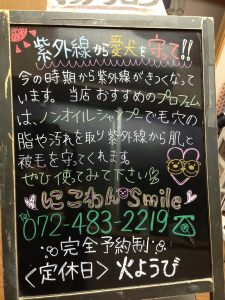 紫外線から愛犬を守て!!
今の時期から紫外線がきつくなって
います。当店おすすめのプロスムー
は、ノンオイルシャンプーでも穴の
脂や汚れを取り紫外線から肌と
被毛を守てくれます。
ぜひ使ってみて下さい
にこわん Smile
Tel 072-483-2219
完全予約制
〈定休日〉火ようび